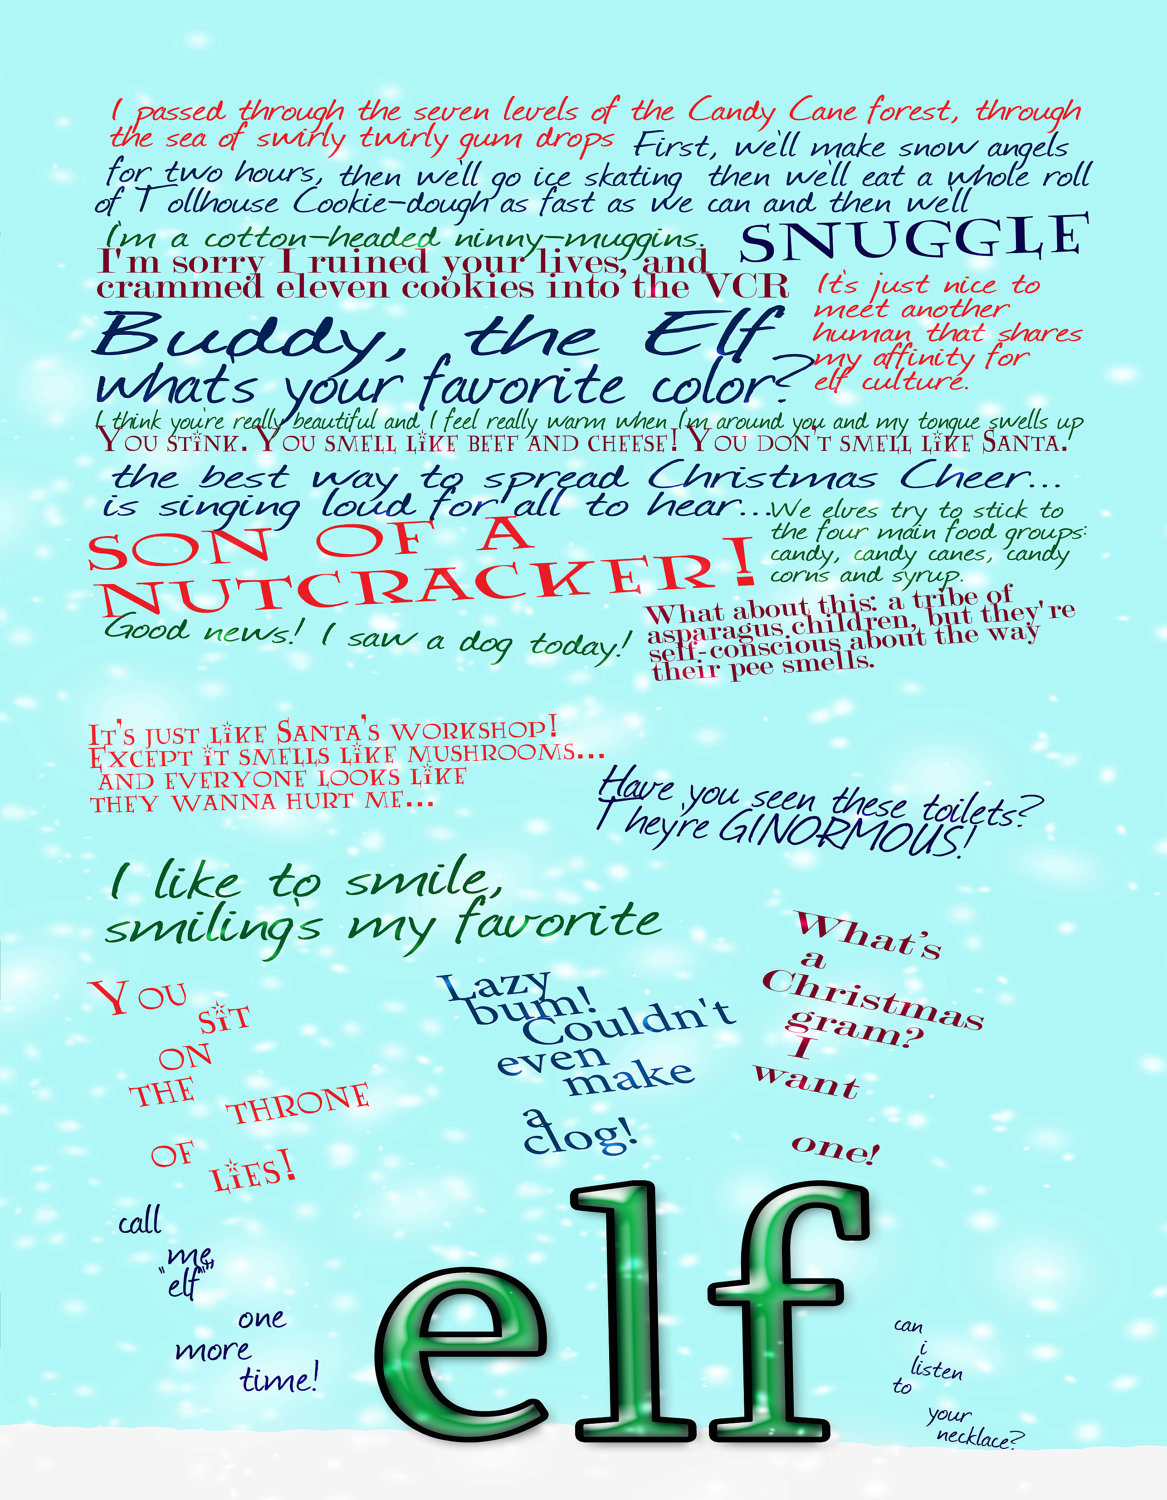 I passed through the seven levels of the Candy Cane forest, through
the sea of swirly twirly gum drops
First, we'll make snow angels
for two hours, then we'll go ice skating then we'll eat a whole roll
of Tollhouse Cookie-dough as fast as we can and then we'll
SNUGGLE
I'm a cotton-headed ninny-muggins.
I'm sorry I ruined your lives, and
crammed eleven cookies into the VCR
It's just nice to
meet another
human that shares
my affinity for
elf culture.
Buddy, the Elf
what's your favorite color?
I think you're really beautiful and I feel really warm when I'm around you and my tongue swells up
You stink. You smell like beef and cheese! You don't smell like Santa.
the best way to spread Christmas Cheer...
is singing loud for all to hear...
We elves try to stick to
the four main food groups:
candy, candy canes, candy
corns and syrup.
SON OF A
NUTCRACKER!
Good news! I saw a dog today!
What about this: a tribe of
asparagus children, but they're
self-conscious about the way
their pee smells.
It's just like Santa's workshop!
Except it smells like mushrooms...
and everyone looks like
they wanna hurt me...
Have you seen these toilets?
They're GINORMOUS!
I like to smile,
smiling's my favorite
You
sit
on
the
throne
of
lies!
Lazy
bum!
Couldn't
even
make
a
clog!
What's
a
Christmas
gram?
I
want
one!
call
me
"elf"
one
more
time!
elf
can
i
listen
to
your
necklace?